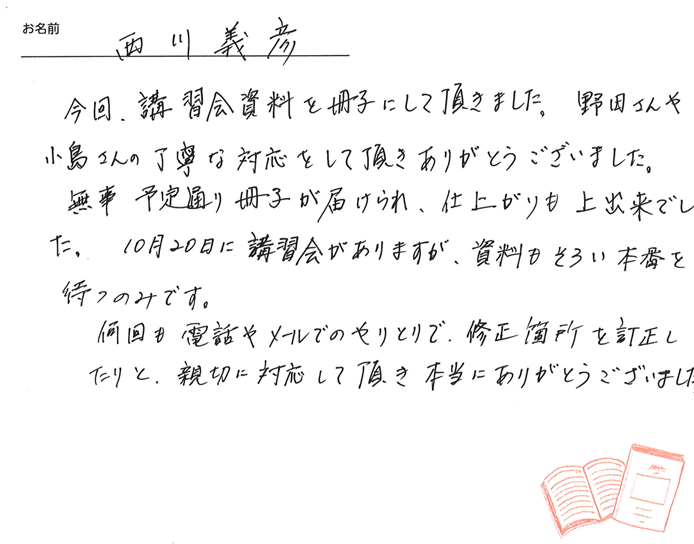 お名前 西川義彦
今回、講習会資料を冊子にして頂きました。野田さんや
小島さんの丁寧な対応をして頂きありがとうございました。
無事予定通り冊子が届けられ、仕上がりも上出来でし
た。10月20日に講習会がありますが、資料もそろい本番を
待つのみです。
何回も電話やメールでのやりとりで、修正箇所を訂正し
たりと、親切に対応して頂き本当にありがとうございました